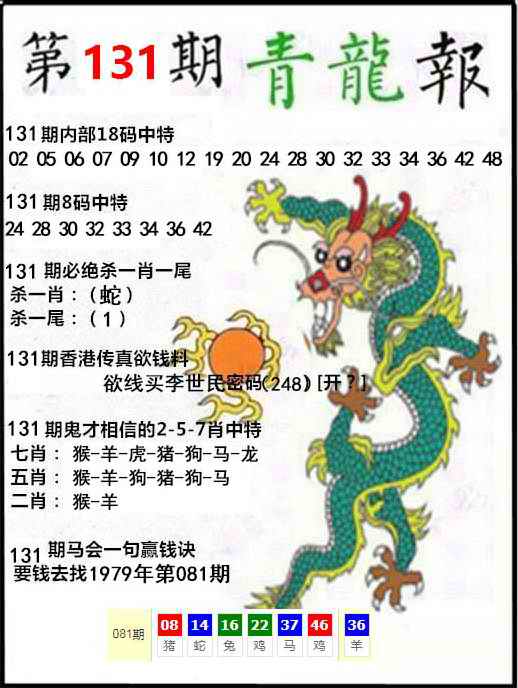 第131期青龍報
131期内部18码中特
02 05 06 07 09 10 12 19 20 24 28 30 32 33 34 36 42 48
131期8码中特
24 28 30 32 33 34 36 42
131期必绝杀一肖一尾
杀一肖：（蛇）
杀一尾：（1）
131期香港传真欲钱料
欲线买李世民密码(248) [开？]
131期鬼才相信的2-5-7肖中特
七肖：猴-羊-虎-猪-狗-马-龙
五肖：猴-羊-狗-猪-狗-马
二肖：猴-羊
131期马会一句赢钱诀
要钱去找1979年第081期
081期 08 14 16 22 37 46 36
猪 蛇 兔 鸡 马 鸡 羊